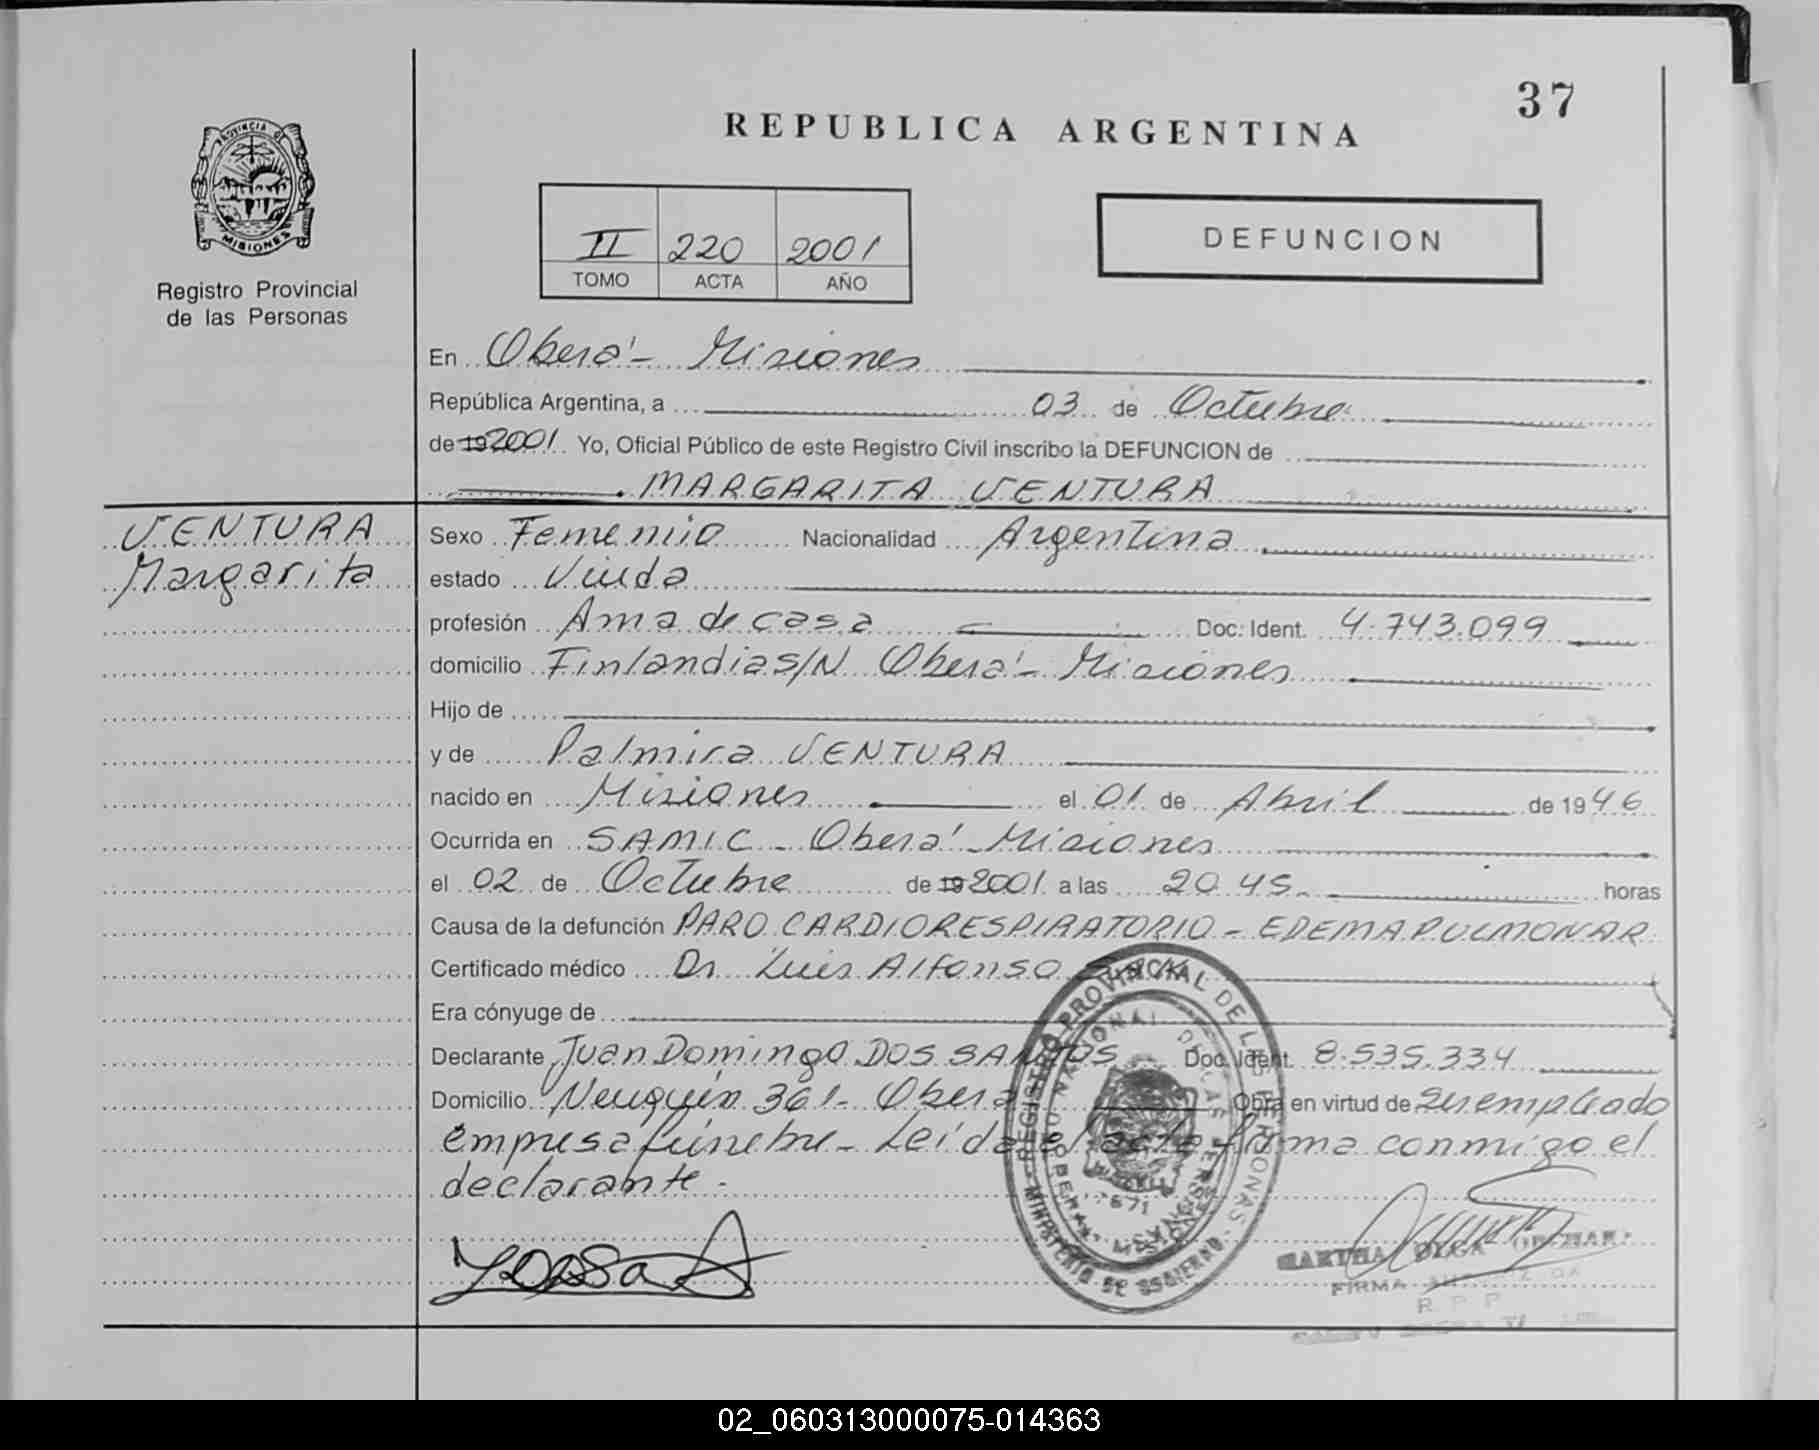 37
REPUBLICA ARGENTINA
PROVINCIA DE
MISIONES
Registro Provincial
de las Personas
II 220 2001
TOMO ACTA AÑO
DEFUNCION
En Oberá - Misiones
República Argentina, a 03 de Octubre
de 19 2001 Yo, Oficial Público de este Registro Civil inscribo la DEFUNCION de
MARGARITA VENTURA
VENTURA
Margarita
Sexo Femenino Nacionalidad Argentina
estado Viuda
profesión Ama de casa Doc. Ident. 4.743.099
domicilio Finlandia S/N Oberá - Misiones
Hijo de
y de Palmira VENTURA
nacido en Misiones el 01 de Abril de 1946
Ocurrida en SAMIC - Oberá - Misiones
el 02 de Octubre de 19 2001 a las 20 45 horas
Causa de la defunción PARO CARDIORESPIRATORIO - EDEMA PULMONAR
Certificado médico Dr. Luis Alfonso
Era cónyuge de
Declarante Juan Domingo DOS SANTOS Doc. Ident. 8.535.334
Domicilio Neuquén 361 - Oberá Obra en virtud de ser empleado
empresa fúnebre - Leída el acta firma conmigo el
declarante.
REGISTRO PROVINCIAL DE LAS PERSONAS
MINISTERIO DE GOBIERNO
MARTHA OLGA
FIRMA
R P P
02_060313000075-014363